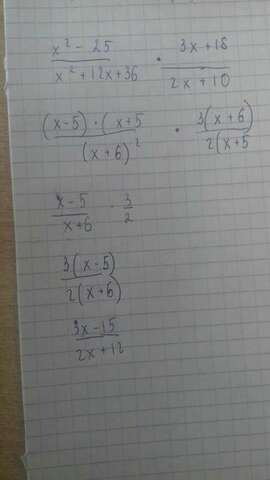 x² - 25 / x² + 12x + 36 · 3x + 18 / 2x + 10
(x-5) · (x+5 / (x+6)² · 3(x+6) / 2(x+5
x-5 / x+6 · 3 / 2
3(x-5) / 2(x+6)
3x-15 / 2x+12